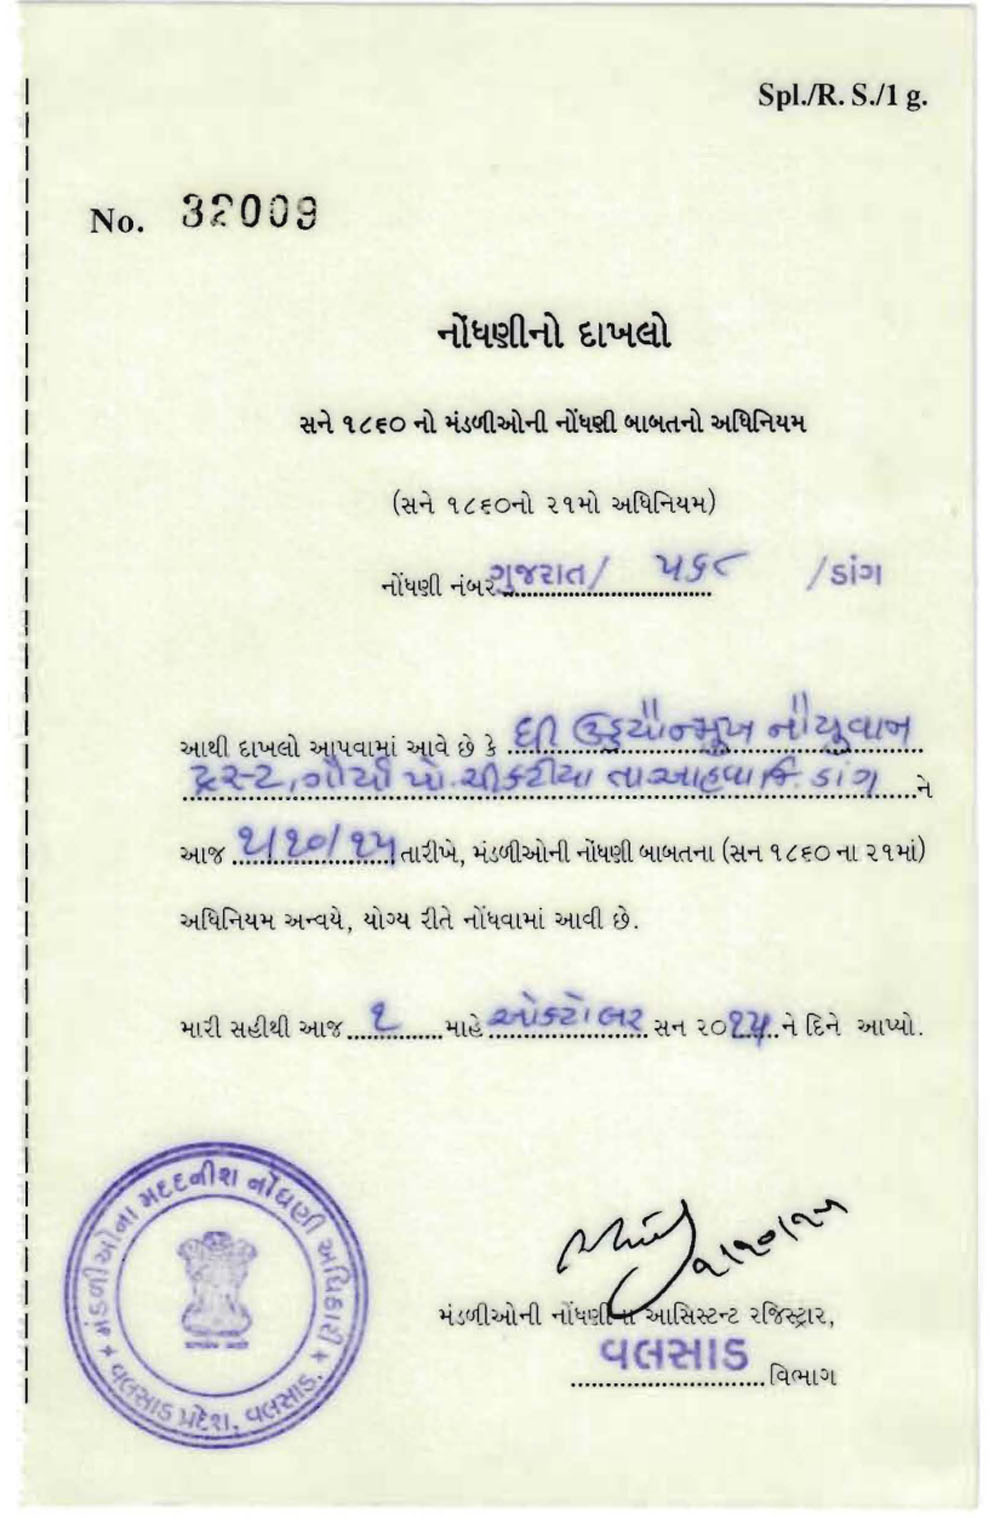 Spl./R. S./1 g.
No. 32009
નોંધણીનો દાખલો
સને ૧૮૬૦ નો મંડળીઓની નોંધણી બાબતનો અધિનિયમ
(સને ૧૮૬૦નો ૨૧મો અધિનિયમ)
નોંધણી નંબર ગુજરાત/ ૫૬૮ /ડાંગ
આથી દાખલો આપવામાં આવે છે કે ધી ઉદયોન્મુખ નૌયુવાન
ટ્રસ્ટ, ગૌર્યા પો. ચીકટીયા તા આહવા જિ. ડાંગ ને
આજ ૧/૧૦/૧૫ તારીખે, મંડળીઓની નોંધણી બાબતના (સન ૧૮૬૦ ના ૨૧માં)
અધિનિયમ અન્વયે, યોગ્ય રીતે નોંધવામાં આવી છે.
મારી સહીથી આજ ૧ માહે ઓક્ટોબર સન ૨૦૧૫ ને દિને આપ્યો.
૧/૧૦/૧૫
મંડળીઓની નોંધણીના આસિસ્ટન્ટ રજિસ્ટ્રાર,
વલસાડ વિભાગ
મંડળીઓના મદદનીશ નોંધણી અધિકારી
વલસાડ પ્રદેશ, વલસાડ.